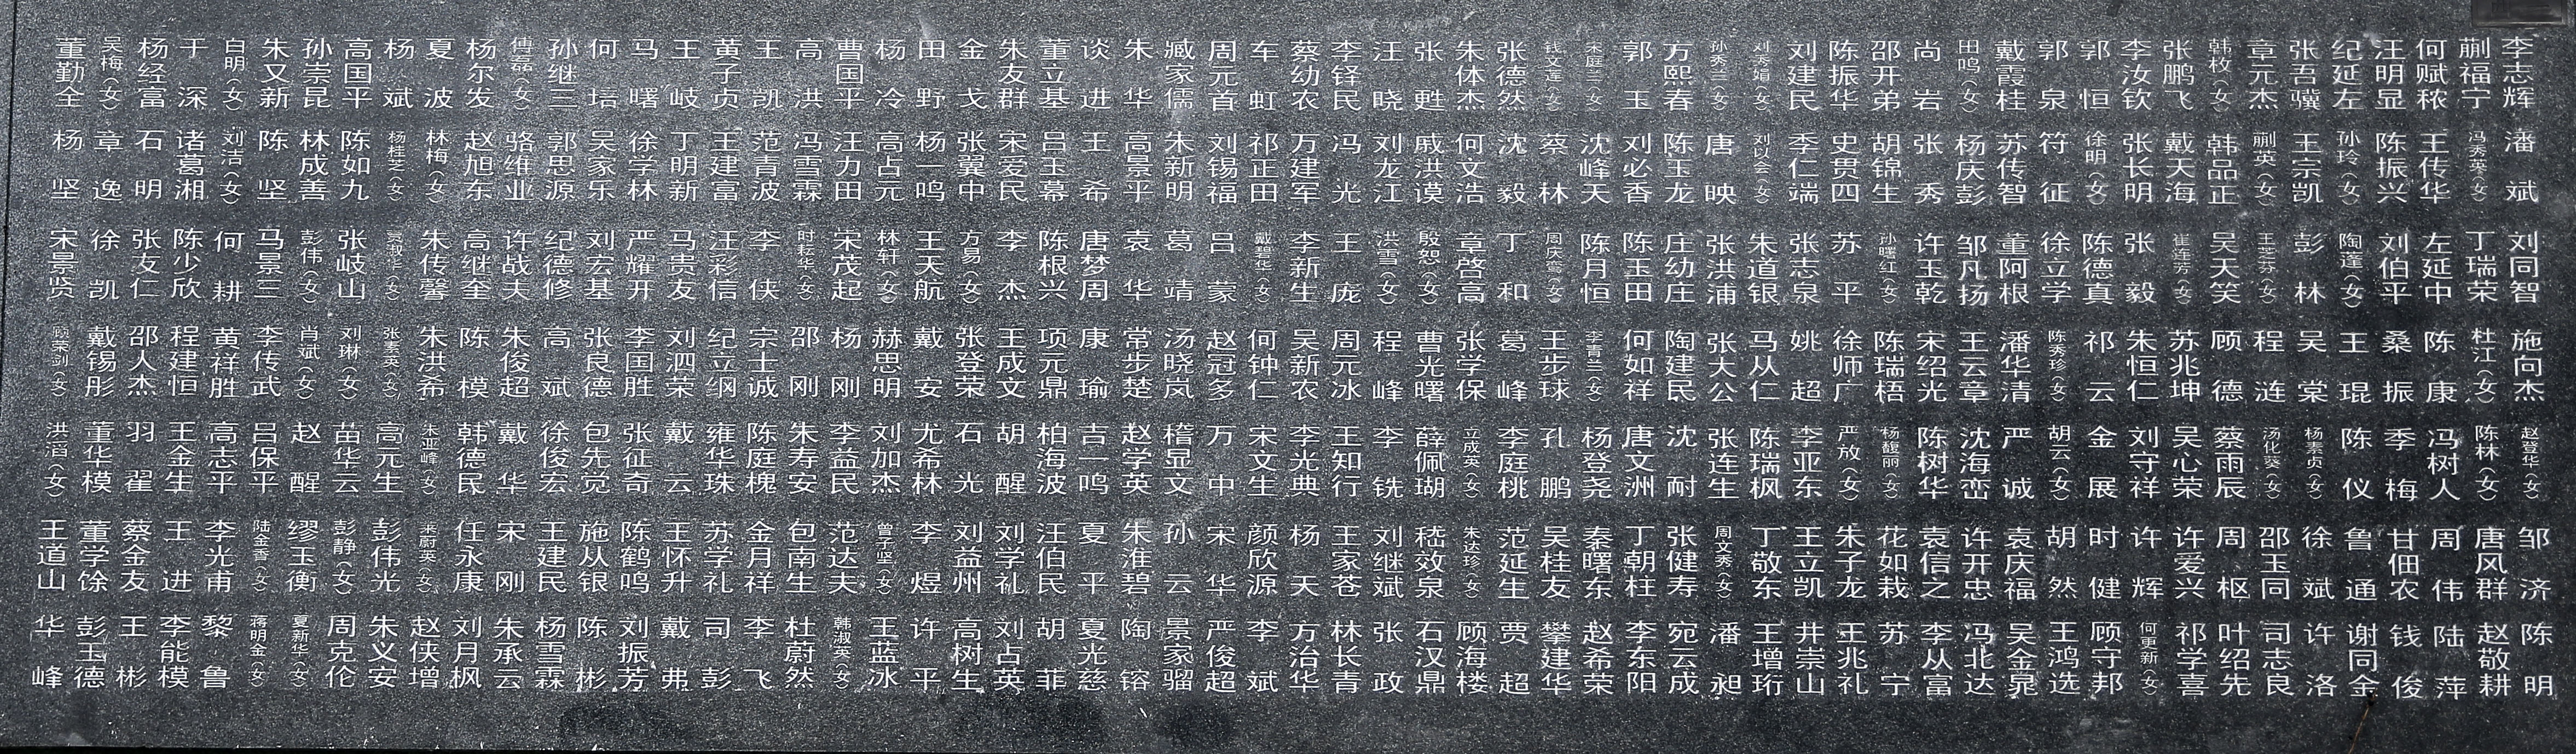 李志辉 蒯福宁 何赋秾 汪明显 纪延左 张吾骥 章元杰 韩枚（女） 张鹏飞 李汝钦 郭恒 郭泉 戴霞桂 田鸣（女） 尚岩 邵开弟 陈振华 刘建民 刘秀娟（女） 孙秀兰（女） 方熙春 郭玉 宋庭兰（女） 钱文莲（女） 张德然 朱体杰 张甦 汪晓 李铎民 蔡幼农 车虹 周元首 臧家儒 朱华 谈进 董立基 朱友群 金戈 田野 杨冷 曹国平 高洪 王凯 黄子贞 王岐 马曙 何培 孙继三 傅磊（女） 杨尔发 夏波 杨斌 高国平 孙崇昆 朱又新 白明（女） 于深 杨经富 吴梅（女） 董勤全
潘斌 冯秀英（女） 王传华 陈振兴 孙玲（女） 王宗凯 蒯英（女） 韩品正 戴天海 张长明 徐明（女） 符征 苏传智 杨庆彭 张秀 胡锦生 史贯四 季仁端 刘以会（女） 唐映 陈玉龙 刘必香 沈峰天 蔡林 沈毅 何文浩 戚洪谟 刘龙江 冯光 万建军 祁正田 刘锡福 朱新明 高景平 王希 吕玉幕 宋爱民 张翼中 杨一鸣 高占元 汪力田 冯雪霖 范青波 王建富 丁明新 徐学林 吴家乐 郭思源 骆维业 赵旭东 林梅（女） 杨桂芝（女） 陈如九 林成善 陈坚 刘洁（女） 诸葛湘 石明 章逸 杨坚
刘同智 丁瑞荣 左延中 刘伯平 陶蓬（女） 彭林 王芝芬（女） 吴天笑 崔连芳（女） 张毅 陈德真 徐立学 董阿根 邹凡扬 许玉乾 孙曙红（女） 苏平 张志泉 朱道银 张洪浦 庄幼庄 陈玉田 陈月恒 周庆鸾（女） 丁和 章啓高 殷恕（女） 洪雪（女） 王庞 李新生 戴碧华（女） 吕蒙 葛靖 袁华 唐梦周 陈根兴 李杰 方易（女） 王天航 林轩（女） 宋茂起 时耘华（女） 李侠 汪彩信 马贵友 严耀开 刘宏基 纪德修 许战夫 高继奎 朱传馨 淑华（女） 张岐山 彭伟（女） 马景三 何耕 陈少欣 张友仁 徐凯 宋景贤
施向杰 杜江（女） 陈康 桑振 王琨 吴棠 程涟 顾德 苏兆坤 朱恒仁 祁云 陈秀珍（女） 潘华清 王云章 宋绍光 陈瑞梧 徐师广 姚超 马从仁 张大公 陶建民 何如祥 李青兰（女） 王步球 葛峰 张学保 曹光曙 程峰 周元冰 吴新农 何钟仁 赵冠多 汤晓岚 常步楚 康瑜 项元鼎 王成文 张登荣 戴安 赫思明 杨刚 邵刚 宗士诚 纪立纲 刘泗荣 李国胜 张良德 高斌 朱俊超 陈模 朱洪希 张素英（女） 刘琳（女） 肖斌（女） 李传武 黄祥胜 程建恒 邵人杰 戴锡彤 顾荣剑（女）
赵登华（女） 陈林（女） 冯树人 季梅 陈仪 杨素贞（女） 汤化葵（女） 蔡雨辰 吴心荣 刘守祥 金展 胡云（女） 严诚 沈海峦 陈树华 杨馥丽（女） 严放（女） 李亚东 陈瑞枫 张连生 沈耐 唐文洲 杨登尧 孔鹏 李庭桃 立成英（女） 薛佩瑚 李铣 王知行 李光典 宋文生 万中 稽显文 赵学英 吉一鸣 柏海波 胡醒 石光 尤希林 刘加杰 李益民 朱寿安 陈庭槐 雍华珠 戴云 张征奇 包先觉 徐俊宏 戴华 韩德民 朱亚峰（女） 高元生 苗华云 赵醒 吕保平 高志平 王金生 羽翟 董华模 洪滔（女）
邹济 唐风群 周伟 甘佃农 鲁通 徐斌 邵玉同 周枢 许爱兴 许辉 时健 胡然 袁庆福 许开忠 袁信之 花如栽 朱子龙 王立凯 丁敬东 周文秀（女） 张健寿 丁朝柱 秦曙东 吴桂友 范延生 朱达珍（女） 嵇效泉 刘继斌 王家苍 杨天 颜欣源 宋华 孙云 朱淮碧 夏平 汪伯民 刘学礼 刘益州 李煜 曾子坚（女） 范达夫 包南生 金月祥 苏学礼 王怀升 陈鹤鸣 施从银 王建民 宋刚 任永康 蔚英（女） 彭伟光 彭静（女） 缪玉衡 陆金香（女） 李光甫 王进 蔡金友 董学馀 王道山
陈明 赵敬耕 陆萍 钱俊 谢同金 许洛 司志良 叶绍先 祁学喜 何更新（女） 顾守邦 王鸿选 吴金晃 冯北达 李从富 苏宁 王兆礼 井崇山 王增珩 潘昶 宛云成 李东阳 赵希荣 攀建华 贾超 顾海楼 石汉鼎 张政 林长青 方治华 李斌 严俊超 景家骝 陶镕 夏光慈 胡菲 刘占英 高树生 许平 王蓝冰 韩淑英（女） 杜蔚然 李飞 司彭 戴弗 刘振芳 陈彬 杨雪霖 朱承云 刘月枫 赵侠增 朱义安 周克伦 夏新华（女） 蒋明金（女） 黎鲁 李能模 王彬 彭玉德 华峰